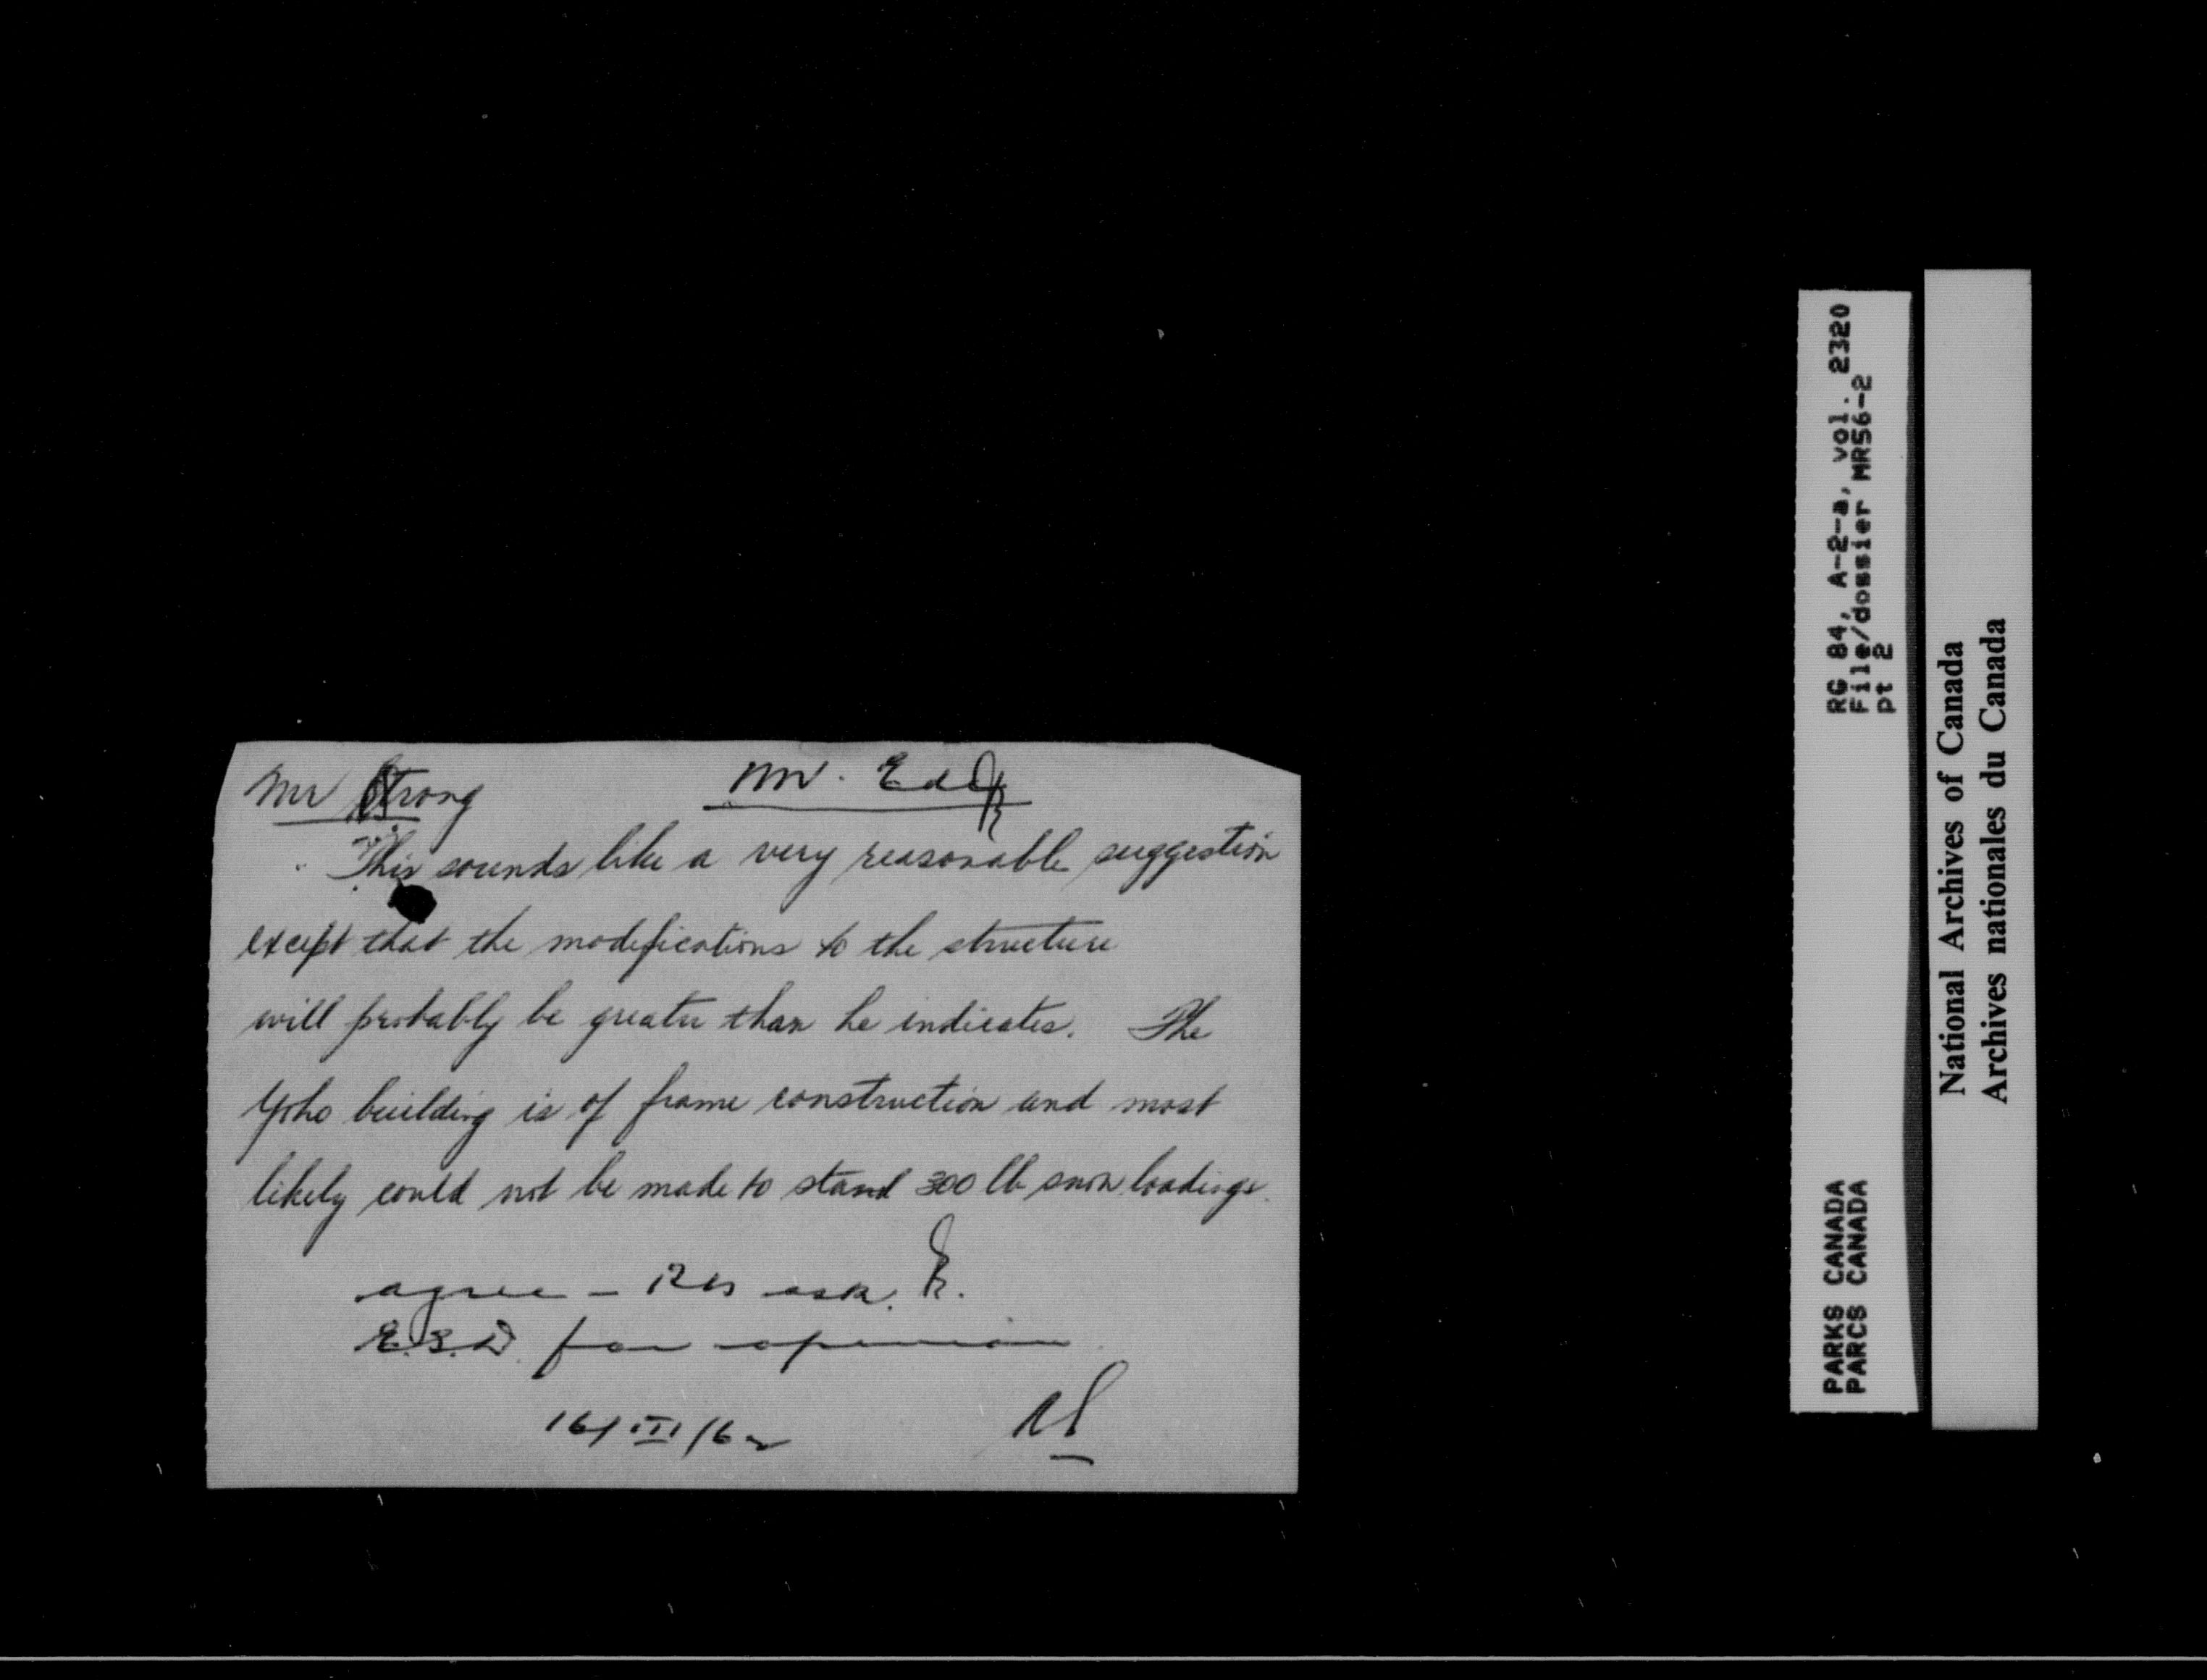 Mr Strong
Mr. Edy
This sounds like a very reasonable suggestion
except that the modifications to the structure
will probably be greater than he indicates. The
Yoho building is of frame construction and most
likely could not be made to stand 300 lb snow loadings.
agree — ask
E.S.D. for opinion
16/III/62
RG 84, A-2-a, vol. 2320
File/dossier MR56-2
pt 2
PARKS CANADA
PARCS CANADA
National Archives of Canada
Archives nationales du Canada